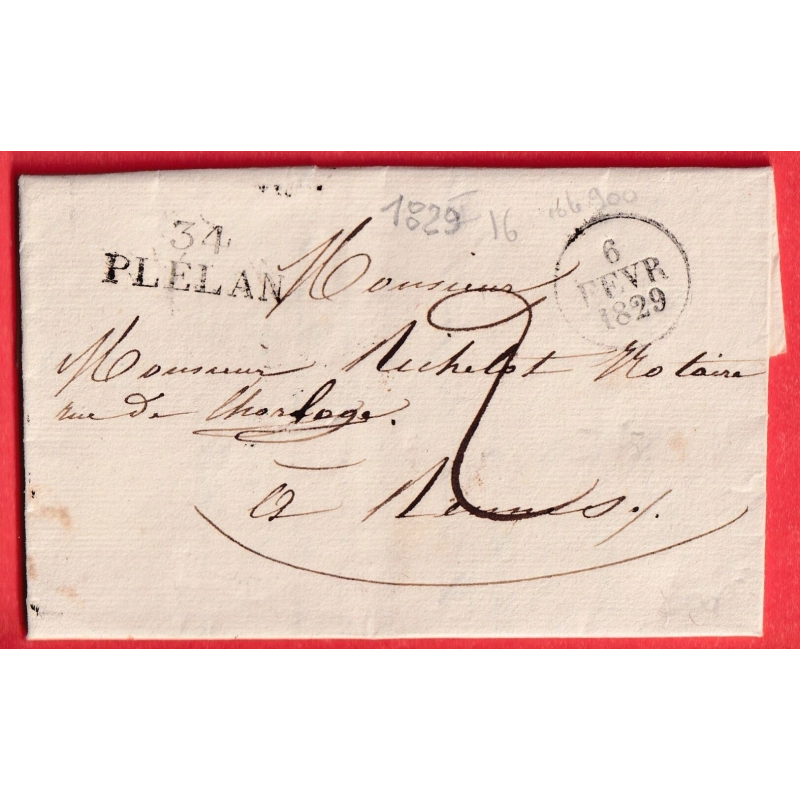 1829 16 166 900
34
PLÉLAN
6
FEVR
1829
Monsieur
Monsieur Richelot Notaire
rue de Lhorloge.
2
à Rennes ./.